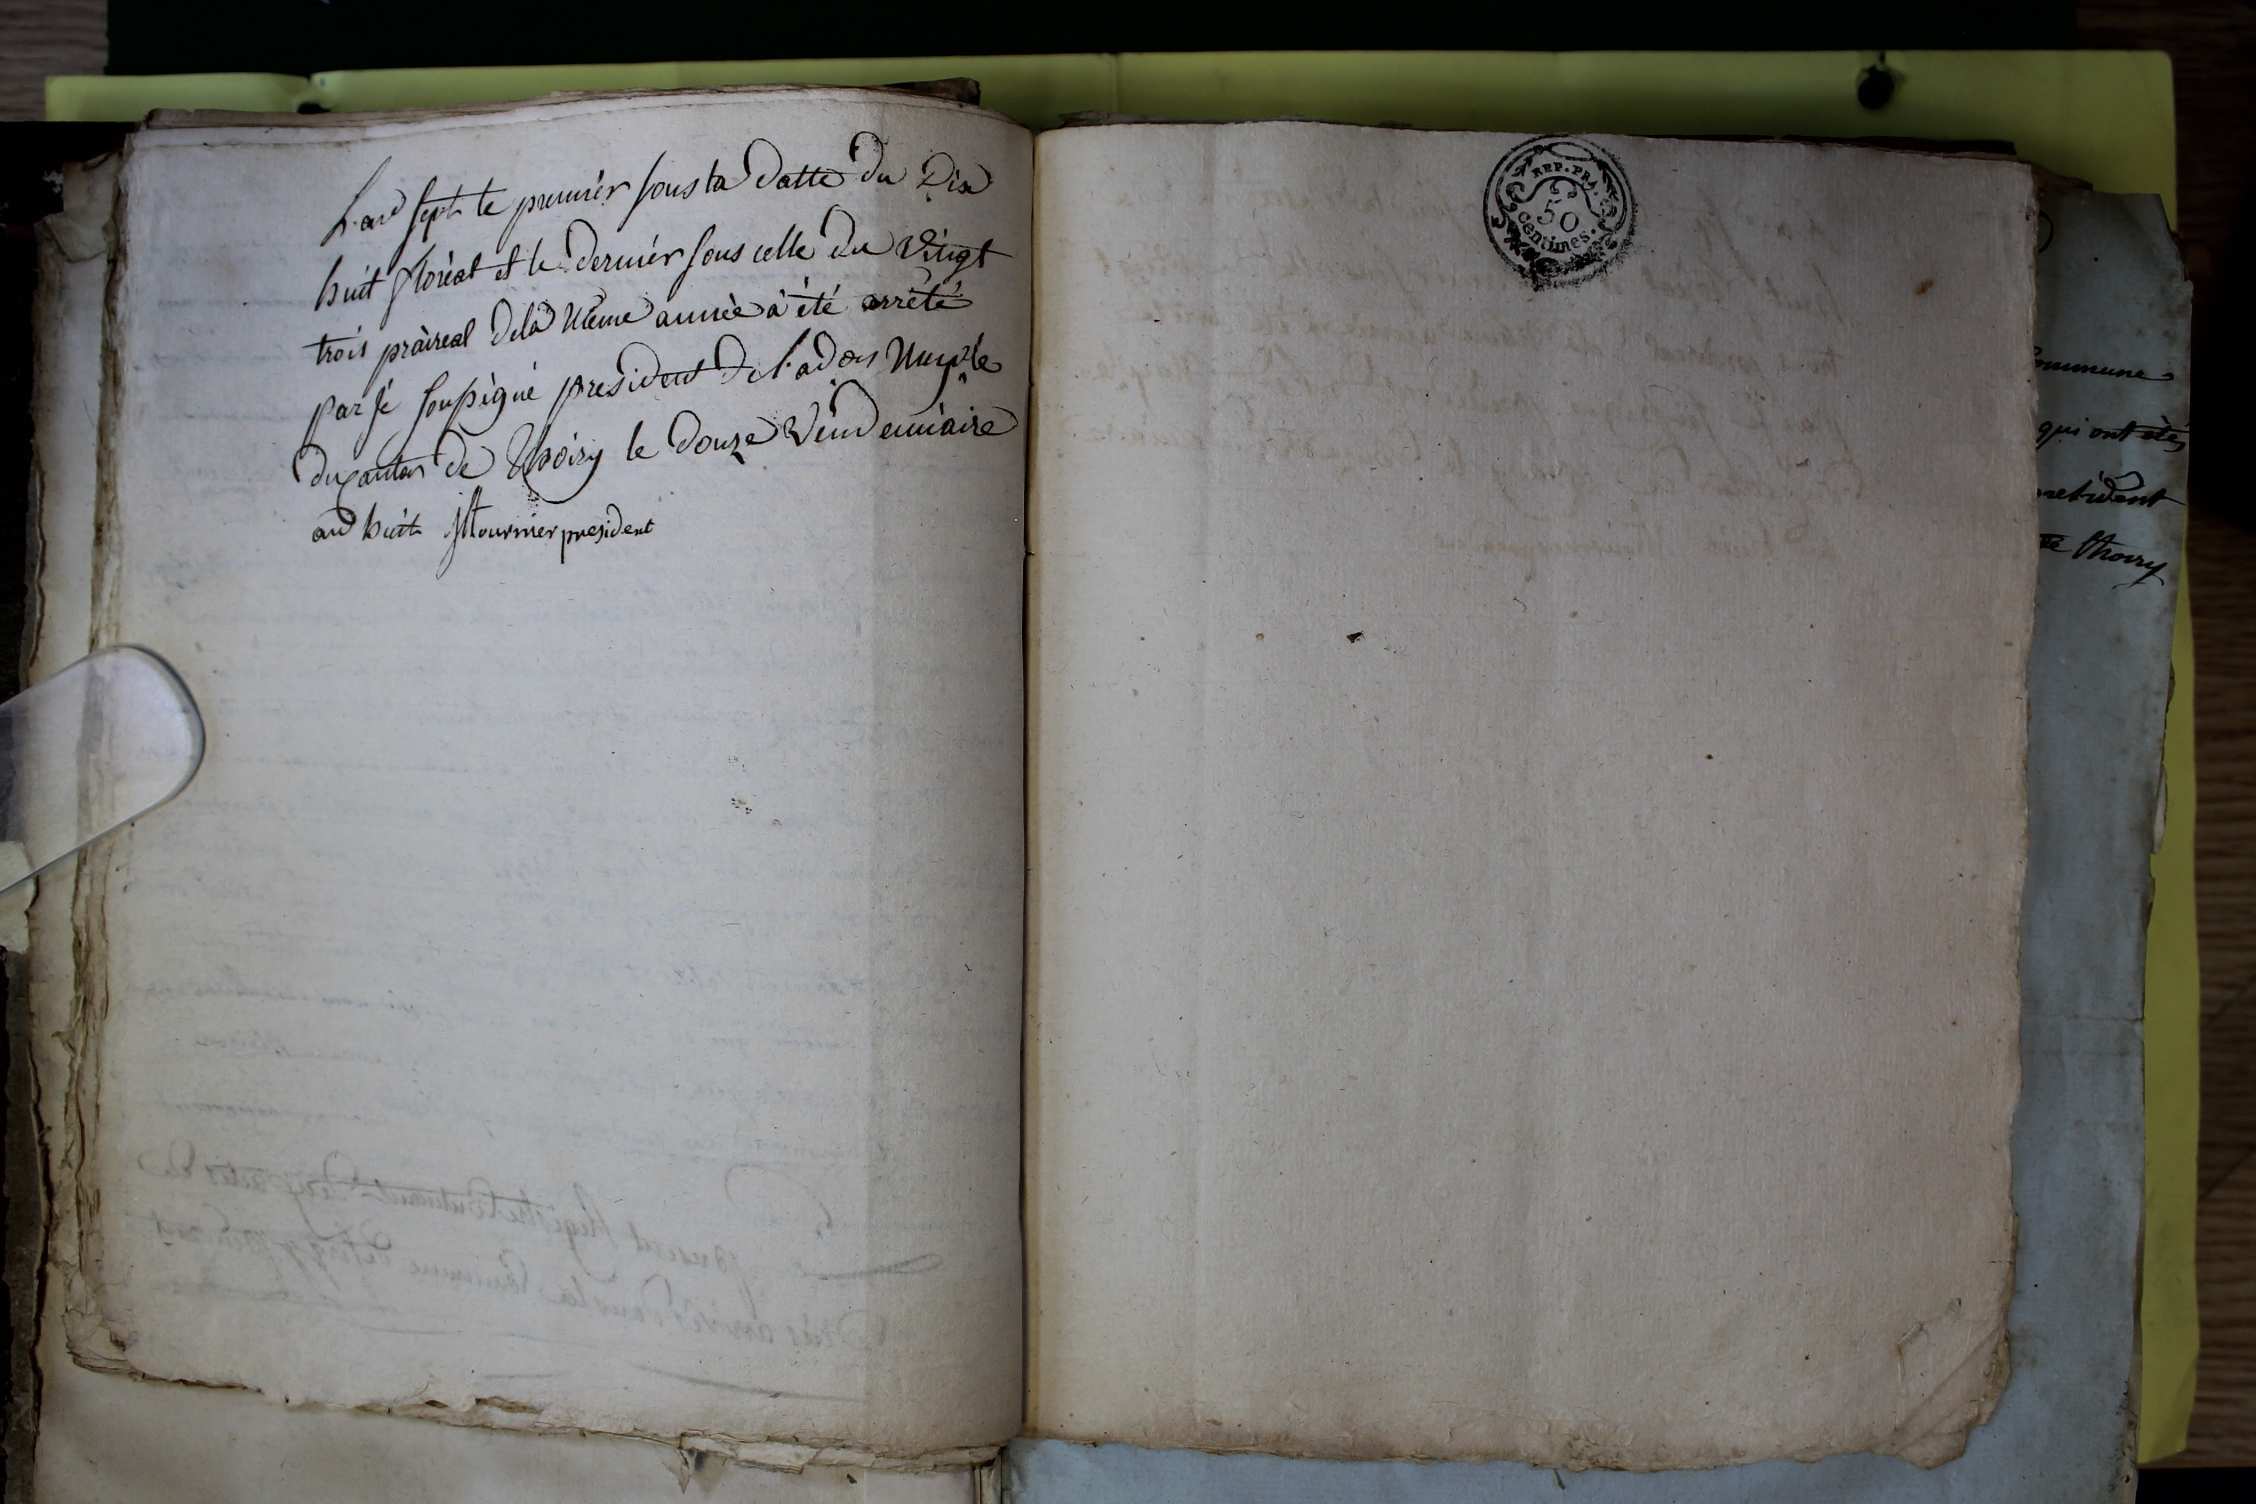 L'an sept le premier sous la datte du Dix
huit floréal et le dernier sous celle du vingt
trois prairéal dela Même année à été arrêté
par Je soussigné president de l'adon Mup.le
du Canton de Thoiry le douze Vendemiaire
an huit Fournier president
REP. FRA.
50
centimes.
commune
qui ont étés
president
de thoiry